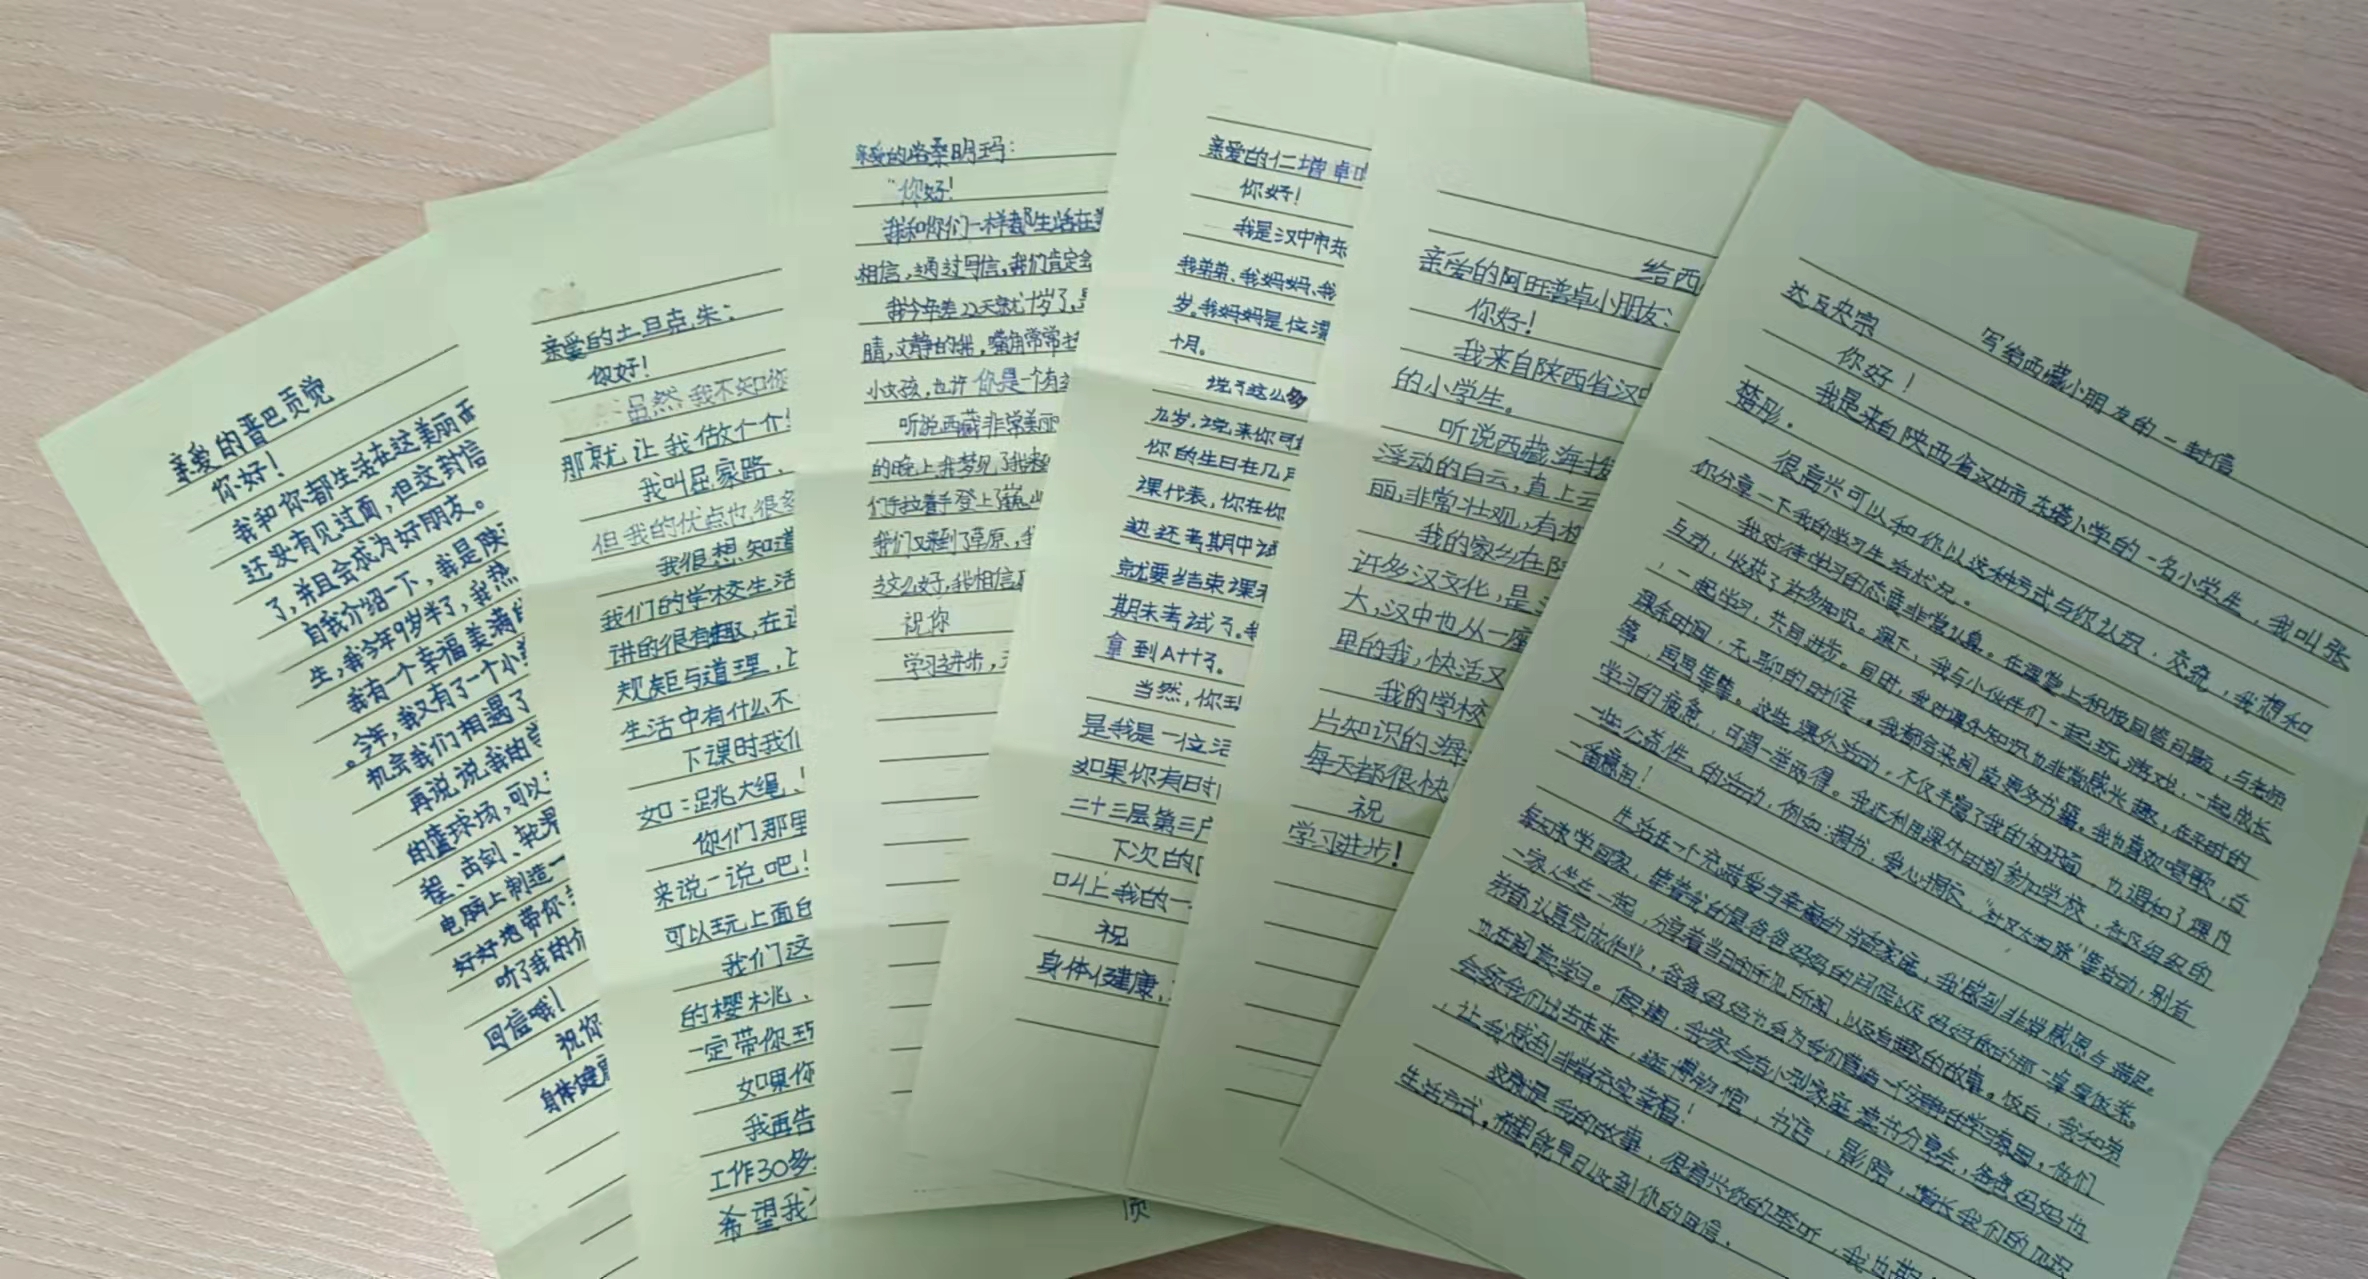 亲爱的晋巴贡觉
你好！
我和你都生活在这美丽西
还没有见过面，但这封信
了，并且会成为好朋友。
自我介绍一下，我是陕
生，我今年9岁半了，我热
我有一个幸福美满的
。今年，我又有了一个小
机会我们相遇了
再说说我的学
的篮球场，可以
程、击剑、轮滑
电脑上制造一
好好地带你
听了我的介
回信哦！
祝你
身体健康
亲爱的土旦克朱：
你好！
虽然我不知你
那就让我做个介
我叫屈家路，
但我的优点也很多
我很想知道
我们的学校生活
讲的很有趣，在这
规矩与道理，
生活中有什么不
下课时我们
如：跳大绳、
你们那里
来说一说吧！
可以玩上面的
我们这
的樱桃，
一定带你玩
如果你
我再告
工作30多
希望我
亲爱的洛桑明玛：
你好！
我和你们一样都生活在
相信，通过写信，我们肯定会
我今年差22天就十岁了，
睛，文静的我，嘴角常常
小女孩，也许你是一个有
听说西藏非常美丽
的晚上我梦见了我
们手拉着手登上了
我们又来到了草原，我
这么好，我相信
祝你
学习进步，
亲爱的仁增卓
你好！
我是汉中市东
我弟弟、我妈妈、我
岁。我妈妈是位
十月。
说了这么多
九岁，说来你可
你的生日在几月
课代表，你在你
边还考期中试
就要结束课
期末考试了。
拿到A++了。
当然，你
是我是一位活
如果你有时
二十三层第三户
下次的
叫上我的一
祝
身体健康，
给西
亲爱的阿旺普卓小朋友：
你好！
我来自陕西省汉中
的小学生。
听说西藏海拔
浮动的白云，直上云
丽，非常壮观，有
我的家乡在陕
许多汉文化，是
大，汉中也从一座
里的我，快活又
我的学校
片知识的海
每天都很快
祝
学习进步！
写给西藏小朋友的一封信
达瓦央宗
你好！
我是来自陕西省汉中市东塔小学的一名小学生，我叫张
楚彤。
很高兴可以和你以这种方式与你认识，交流，我想和
你分享一下我的学习生活状况。
我对待学习的态度非常认真。在课堂上积极回答问题，与老师
互动，收获了许多知识。课下，我与小伙伴们一起玩游戏，一起成长
，一起学习，共同进步。同时，我对课外知识也非常感兴趣，在平时的
课余时间，无聊的时候，我都会来阅览更多书籍。我也喜欢唱歌，古
筝，画画等等。这些课外活动，不仅丰富了我的知识面，也调和了课内
学习的疲惫，可谓一举两得。我还利用课外时间参加学校，社区组织的
一些公益性的活动，例如：捐书，爱心捐款，“社区大扫除”等活动，别有
一番意思！
生活在一个充满爱与幸福的当看家庭，我感到非常感恩与满足。
每天放学回家，等着我的是爸爸妈妈的问候以及妈妈做的那一桌爱饭菜。
一家人坐在一起，分享着当日的所见所闻，以及有趣的故事。饭后，我和弟
弟都认真完成作业，爸爸妈妈也会为我们营造一个安静的学习氛围，他们
也在阅读学习。假期，我家会有小型家庭读书分享会，爸爸妈妈也
会领我们出去走走，逛博物馆，书店，影院，增长我们的见识
，让我感到非常充实幸福！
这就是我的故事，很高兴你的聆听，我也期
生活方式，希望能早日收到你的回信。